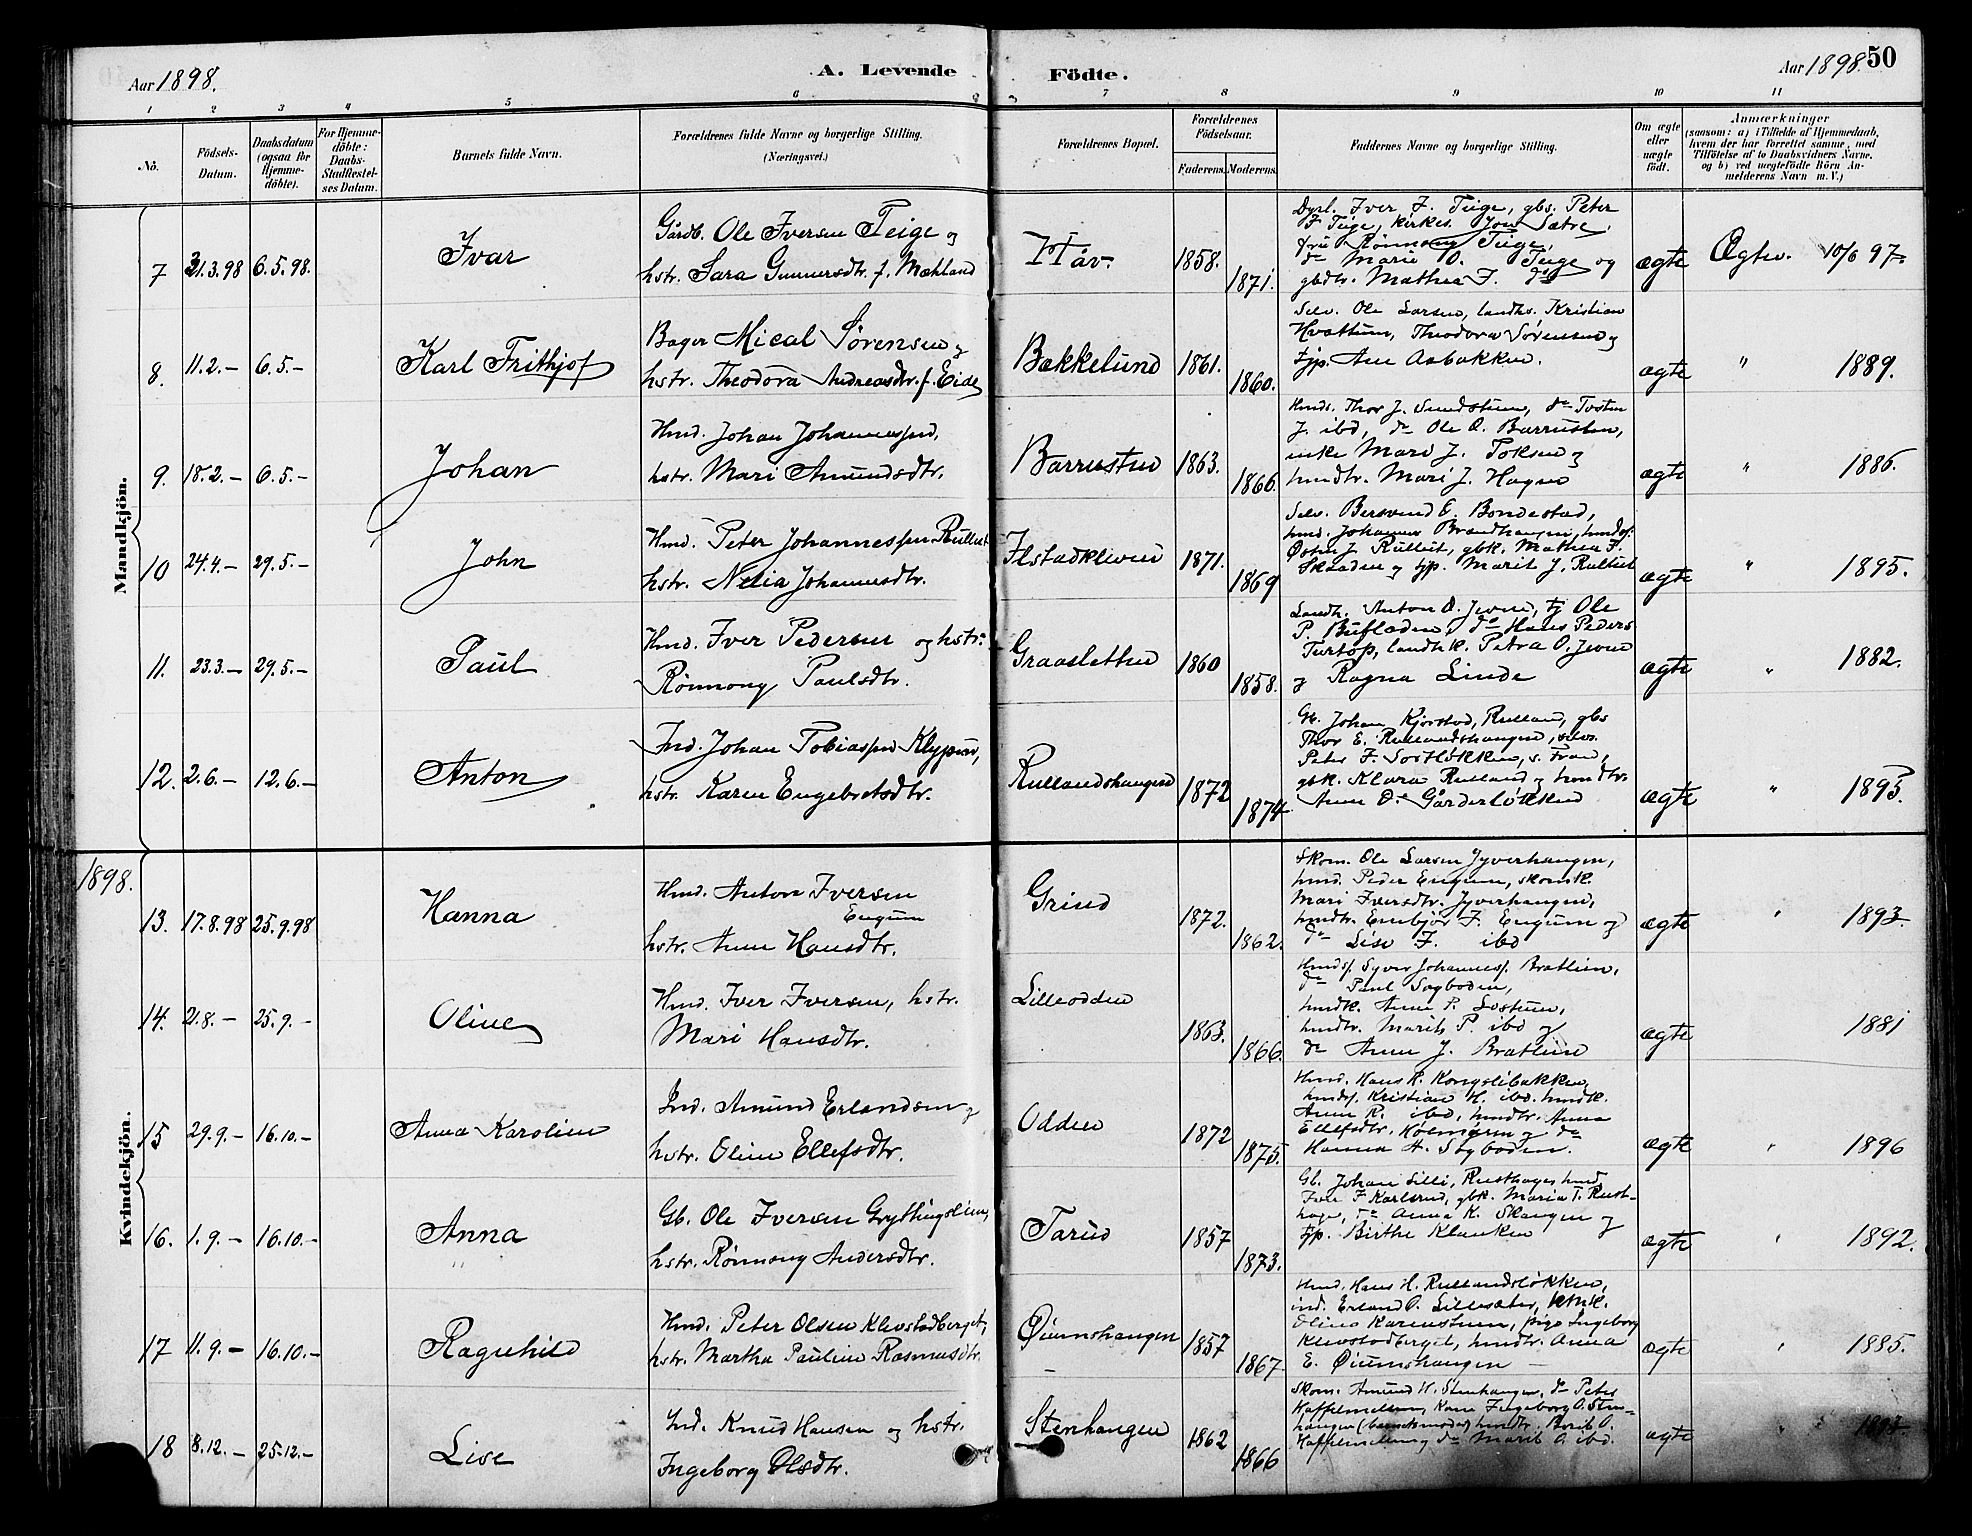 Aar 1898.
A. Levende
Födte.
Aar 1898. 50
1 2 3 4 5 6 7 8 9 10 11
No.
Födsels-
Datum.
Daabsdatum
(ogsaa for
Hjemme-
döbte).
For Hjemme-
döbte:
Daabs-
Stadfæstel-
ses Datum.
Barnets fulde Navn.
Forældrenes fulde Navne og borgerlige Stilling.
(Næringsvei.)
Forældrenes Bopæl.
Forældrenes
Födselsaar.
Faderens. Moderens.
Faddernes Navne og borgerlige Stilling.
Om ægte
eller
uægte
födt.
Anmærkninger
(saasom: a) i Tilfælde af Hjemmedaab,
hvem der har forrettet samme, med
Tilföielse af to Daabsvidners Navne.
og b) ved uægtefödte Börn An-
melderens Navn m. V.)
Mandkjön.
7 31.3.98 6.5.98. Ivar
Gårdb. Ole Iversen Teige og
hstr. Sara Gunnersdtr. f. Mæhland
Håv. 1858. 1871.
Iver F. Teige, gbs. Peter
F Teige, kirkes. Jon Sætre,
fru Rønnaug Teige,
do Marie O. Teige og
gbdtr. Mathea F. do
ægte Ægtev. 10/6 97.
8. 11.2.— 6.5.— Karl Frithjof
Bager Mical Sørensen og
hstr. Theodora Andreasdtr. f. Eide
Bækkelund 1861. 1860.
Selv. Ole Larsen, landhs. Kristian
Hvattum, Theodora Sørensen og
tjp. Ane Aabakken.
ægte " 1889.
9. 18.2.— 6.5.— Johan
Hmd. Johan Johannessen,
hstr. Mari Amundsdtr.
Barrusten 1863. 1866.
Hmds. Thor J. Sundstuen, do Tosten
J. ibd, do Ole O. Barrusten,
enke Mari J. Toksen og
hmdtr. Mari J. Hagen
ægte " 1886.
10 24.4.— 29.5.— John
Hmd. Peter Johannessen Rullut
hstr. Nelia Johannesdtr.
Ilstadkliven 1871. 1869
Selv. Bersvend E. Bondestad,
hmd. Johannes Brandhaugen, hmds.
Østen J. Rullut, gbk. Mathea F.
og tjp. Marit J. Rullut
ægte " 1895.
11. 23.3.— 29.5.— Paul
Hmd. Iver Pedersen og hstr.
Rønnong Paulsdtr.
Graasletten 1860 1858.
Landh. Anton O. Jevne, tj Ole
P. Bufladen, do Hans Peders
Turtop, landhk. Petra O. Jevne
og Ragna Linde
ægte " 1882.
12. 2.6.— 12.6.— Anton
Ind. Johan Tobiassen Klypen,
hstr. Karen Engebretsdtr.
Rullandshaugen 1872 1874
Gb. Johan Kjorstad, Rulland, gbs
Thor E. Rullandshaugen, selv.
Peter F. Sortløkken, s. Fron,
gbk. Klara Rulland og hmdtr.
Anne O. Gårderløkken
ægte " 1895.
1898.
Kvindekjön.
13. 17.8.98 25.9.98 Hanna
Hmd. Anton Iversen
Engum
hstr. Anne Hansdtr.
Grind 1872. 1862.
Skom. Ole Larsen Jyverhaugen,
hmd. Peder Engum, skomk.
Mari Iversdtr. Jyverhaugen,
hmdtr. Embjør F. Engum og
do Lise F. ibd
ægte " 1893.
14. 21.8.— 25.9.— Oline
Hmd. Iver Iversen, hstr.
Mari Hansdtr.
Lilleodden 1863. 1866.
Hmds. Syver Johannes. Bratlien,
do Paul Sagboden,
hmdk. Anne P. Lostuen,
hmdtr. Marits P. ibd og
do Anne J. Bratlien
ægte 1881
15 29.9.— 16.10.— Anna Karoline
Ind. Amund Erlandsen og
hstr. Oline Ellefsdtr.
Odden 1872 1875.
Hmd. Hans K. Kongslibakken,
hmds. Kristian H. ibd. hmdk.
Anne K. ibd, hmdtr. Anna
Ellefsdtr. Holmøren og do
Hanna H. Sagboden.
ægte " 1896
16. 1.9.— 16.10.— Anna
Gb. Ole Iversen Grythingslien,
hstr. Rønnong Andersdtr.
Tarud 1857 1873.
Gb. Johan Lilli, Rusthagen hmd
Iver F Karlsrud, gbk. Maria T. Rust-
hage, do Anna K. Skaugen og
tjp. Birthe Klanken
ægte " 1892.
17 11.9.— 16.10.— Ragnhild
Hmd. Peter Olsen Klevstadberget,
hstr. Martha Pauline Rasmusdtr.
Øiumshaugen 1857 1867
Hmd. Hans H. Rullandsløkken,
ind. Erland O. Lillesæter, hmk.
Oline Karenstuen, pige Ingeborg
Klevstadberget, hmdtr. Anna
E. Øiumshaugen —
ægte " 1885.
18 8.12.— 25.12.— Lise
Ind. Knud Hansen og hstr.
Ingeborg Olsdtr.
Stenhaugen 1862 1866
Skom. Amund H. Stenhaugen, do Peter
Kaffemellum, Kone Ingeborg O. Sten-
haugen (barnets moder) hmdtr. Berit O.
Kaffemellum og do Marit O. ibd.
ægte